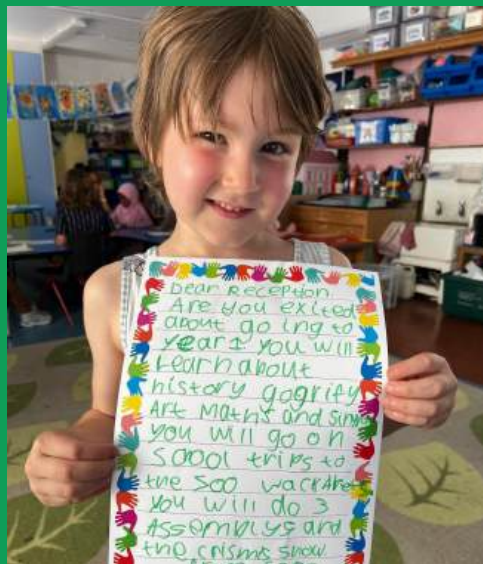 Dear Reception
Are you exited
about going to
year 1 you will
Learn about
history gogrify
Art Maths and
you will go on
Scool trips to
the Soo
you will do 3
Assemblys and
the crisms show